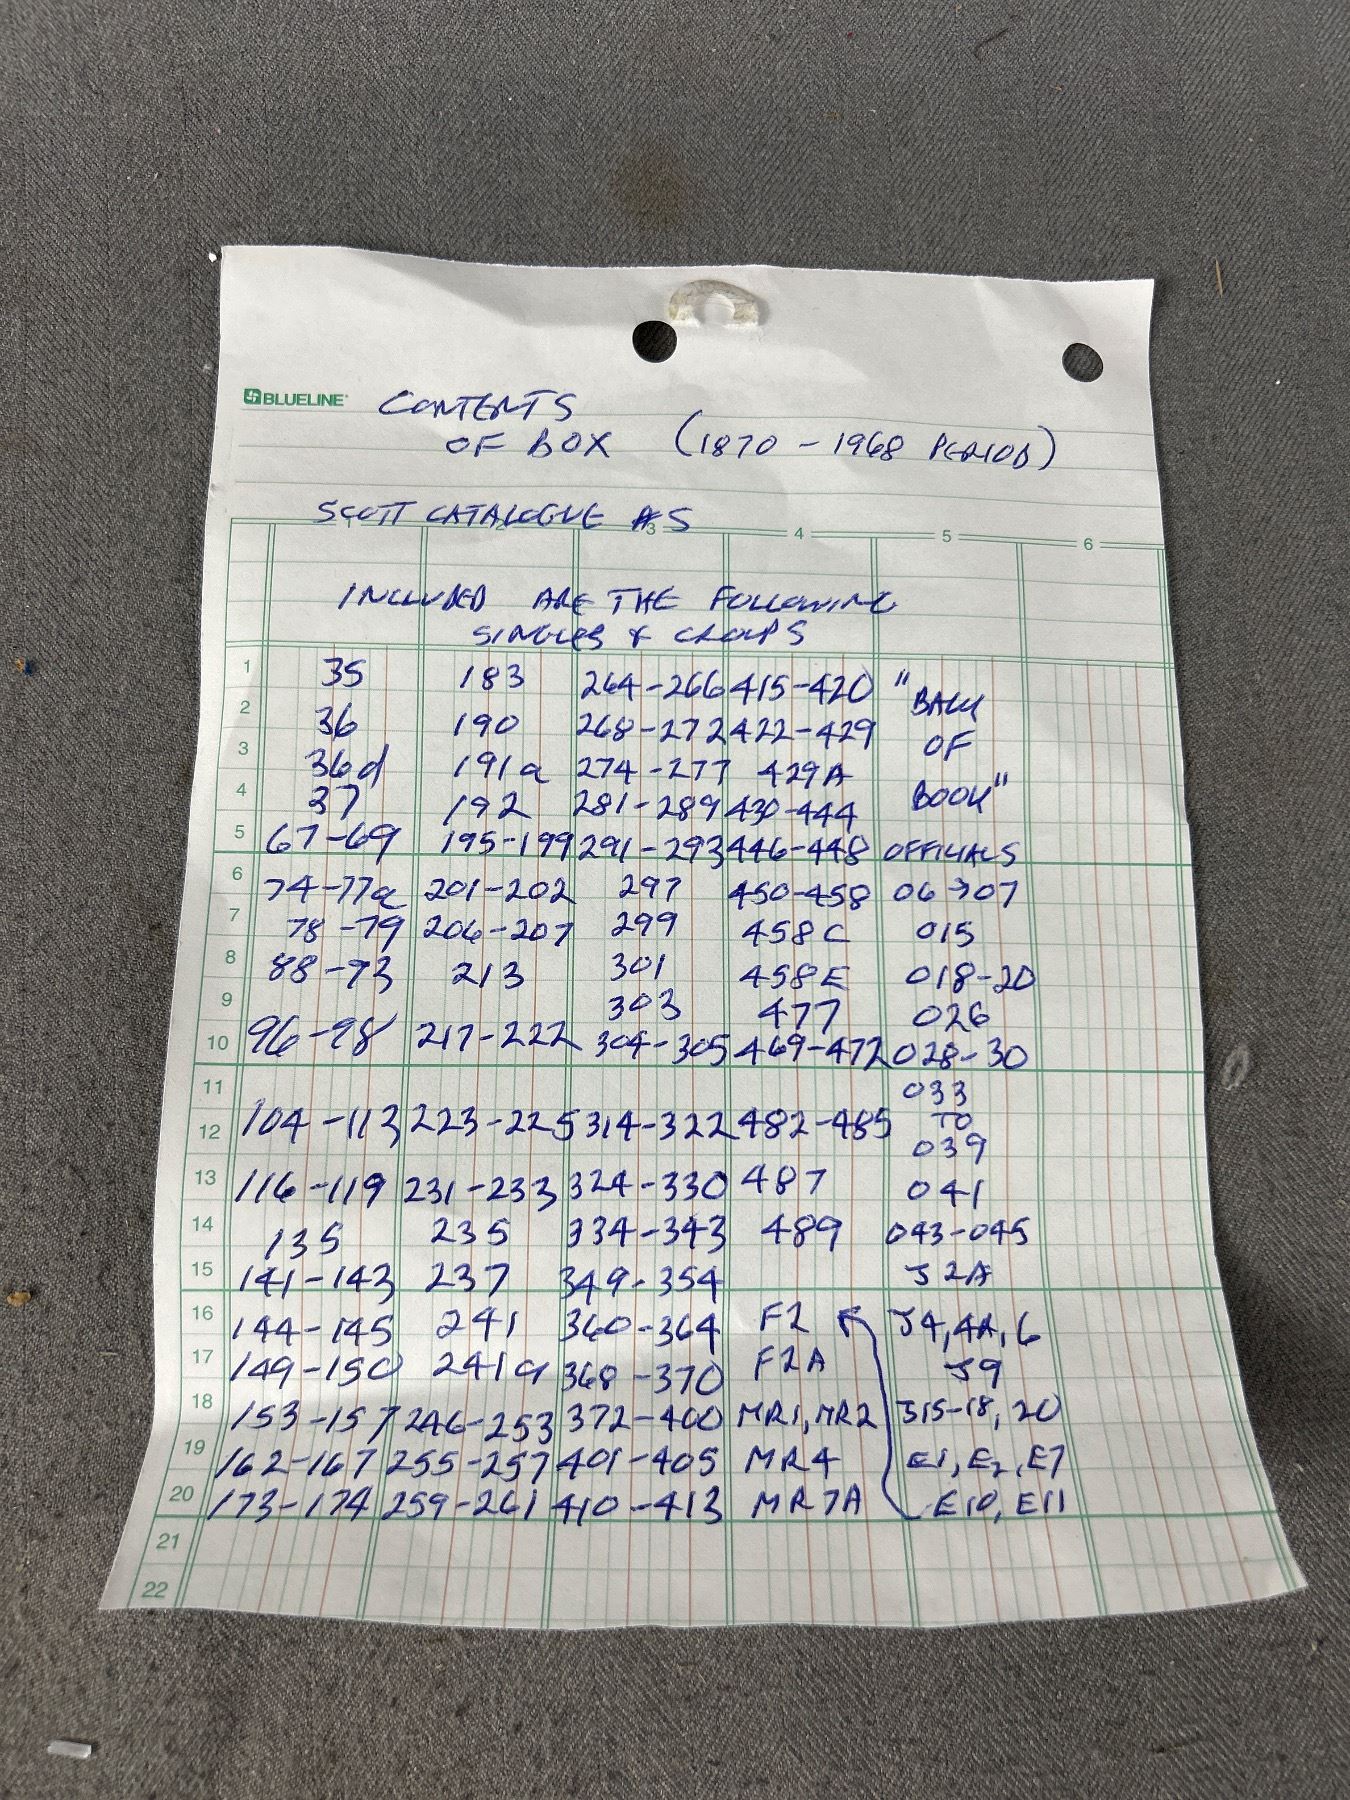 BLUELINE
CONTENTS
OF BOX (1870 - 1968 PERIOD)
SCOTT CATALOGUE #S
1 2 3 4 5 6
INCLUDED ARE THE FOLLOWING
SINGLES & GROUPS
1 35 183 264-266 415-420 "BACK
2 36 190 268-272 422-429 OF
3 36d 191a 274-277 429A
4 37 192 281-289 430-444 BOOK"
5 67-69 195-199 291-293 446-448 OFFICIALS
6 74-77a 201-202 297 450-458 06→07
7 78-79 206-207 299 458C 015
8 88-93 213 301 458E 018-20
9 303 477 026
10 96-98 217-222 304-305 469-472 028-30
11 033
12 104-113 223-225 314-322 482-485 TO
039
13 116-119 231-233 324-330 487 041
14 135 235 334-343 489 043-045
15 141-143 237 349-354 J2A
16 144-145 241 360-364 F2 J4, 4A, 6
17 149-150 241a 368-370 F2A J9
18 153-157 246-253 372-400 MR1, MR2 J15-18, 20
19 162-167 255-257 401-405 MR4 E1, E2, E7
20 173-174 259-261 410-413 MR7A E10, E11
21
22